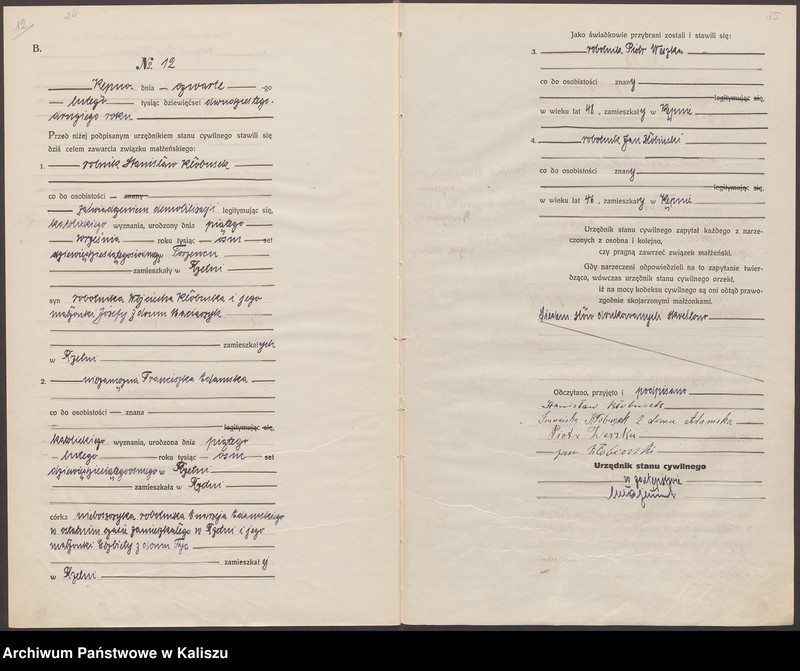 12
24
B.
№ 12
Kępno dnia czwarte -go
lutego tysiąc dziewięćset dwudziestego
drugiego roku
Przed niżej podpisanym urzędnikiem stanu cywilnego stawili się
dziś celem zawarcia związku małżeńskiego:
1. robotnik Stanisław Kłobusek
co do osobistości znany
zaświadczeniem demobilizacji legitymując się,
katolickiego wyznania, urodzony dnia piątego
września roku tysiąc ośm set
zamieszkały w Rzetni
syn robotnika Wojciecha Kłobuska i jego
małżonki Józefy z domu Maciaszyk
zamieszkałych
w Rzetni
2. niezamężna Franciszka Adamska
co do osobistości znana
legitymując się,
katolickiego wyznania, urodzona dnia piątego
lutego roku tysiąc ośm set
w Rzetni
zamieszkała w Rzetni
córka nieboszczyka robotnika Adamskiego
w ostatnim czasie zamieszkałego w Rzetni i jego
małżonki Elżbiety z domu
zamieszkały
w Rzetni
Jako świadkowie przybrani zostali i stawili się:
3. robotnik Piotr
co do osobistości znany
legitymując się,
w wieku lat 48, zamieszkały w Kępnie
4. robotnik Jan Kłobuski
co do osobistości znany
legitymując się,
w wieku lat 46, zamieszkały w Kępnie
Urzędnik stanu cywilnego zapytał każdego z narze-
czonych z osobna i kolejno,
czy pragną zawrzeć związek małżeński.
Gdy narzeczeni odpowiedzieli na to zapytanie twier-
dząco, wówczas urzędnik stanu cywilnego orzekł,
iż na mocy kodeksu cywilnego są oni odtąd prawo-
zgodnie skojarzonymi małżonkami.
słów drukowanych skreślono
Odczytano, przyjęto i podpisano
Stanisław Kłobusek
Franciszka Kłobusek z domu Adamska
Piotr
Jan
Urzędnik stanu cywilnego
w zastępstwie
Archiwum Państwowe w Kaliszu